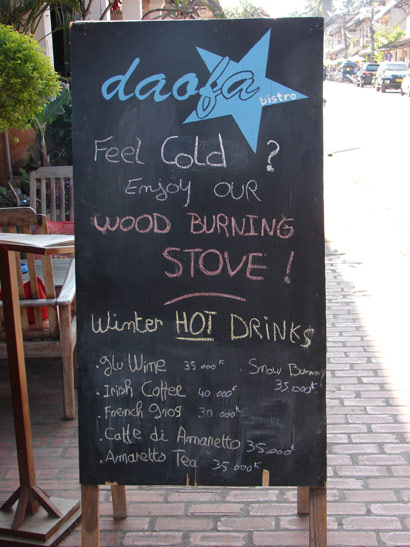 daofa
bistro
Feel Cold ?
Enjoy OUR
WOOD BURNING
STOVE !
Winter HOT DRINKS
. Glu Wine 35 000ᴷ
. Snow Bunny 35.000ᴷ
. Irish Coffee 40 000ᴷ
. French Grog 30 000ᴷ
. Caffe di Amaretto 35.000ᴷ
. Amaretto Tea 35.000ᴷ